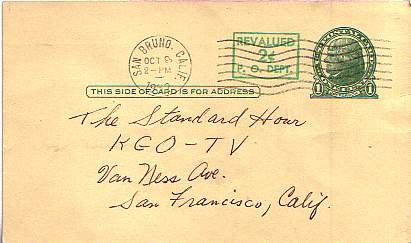 SAN BRUNO, CALIF.
OCT 9
2-PM
REVALUED
2¢
P. O. DEPT.
1 1
THIS SIDE OF CARD IS FOR ADDRESS
The Standard Hour
KGO-TV
Van Ness Ave.
San Francisco, Calif.